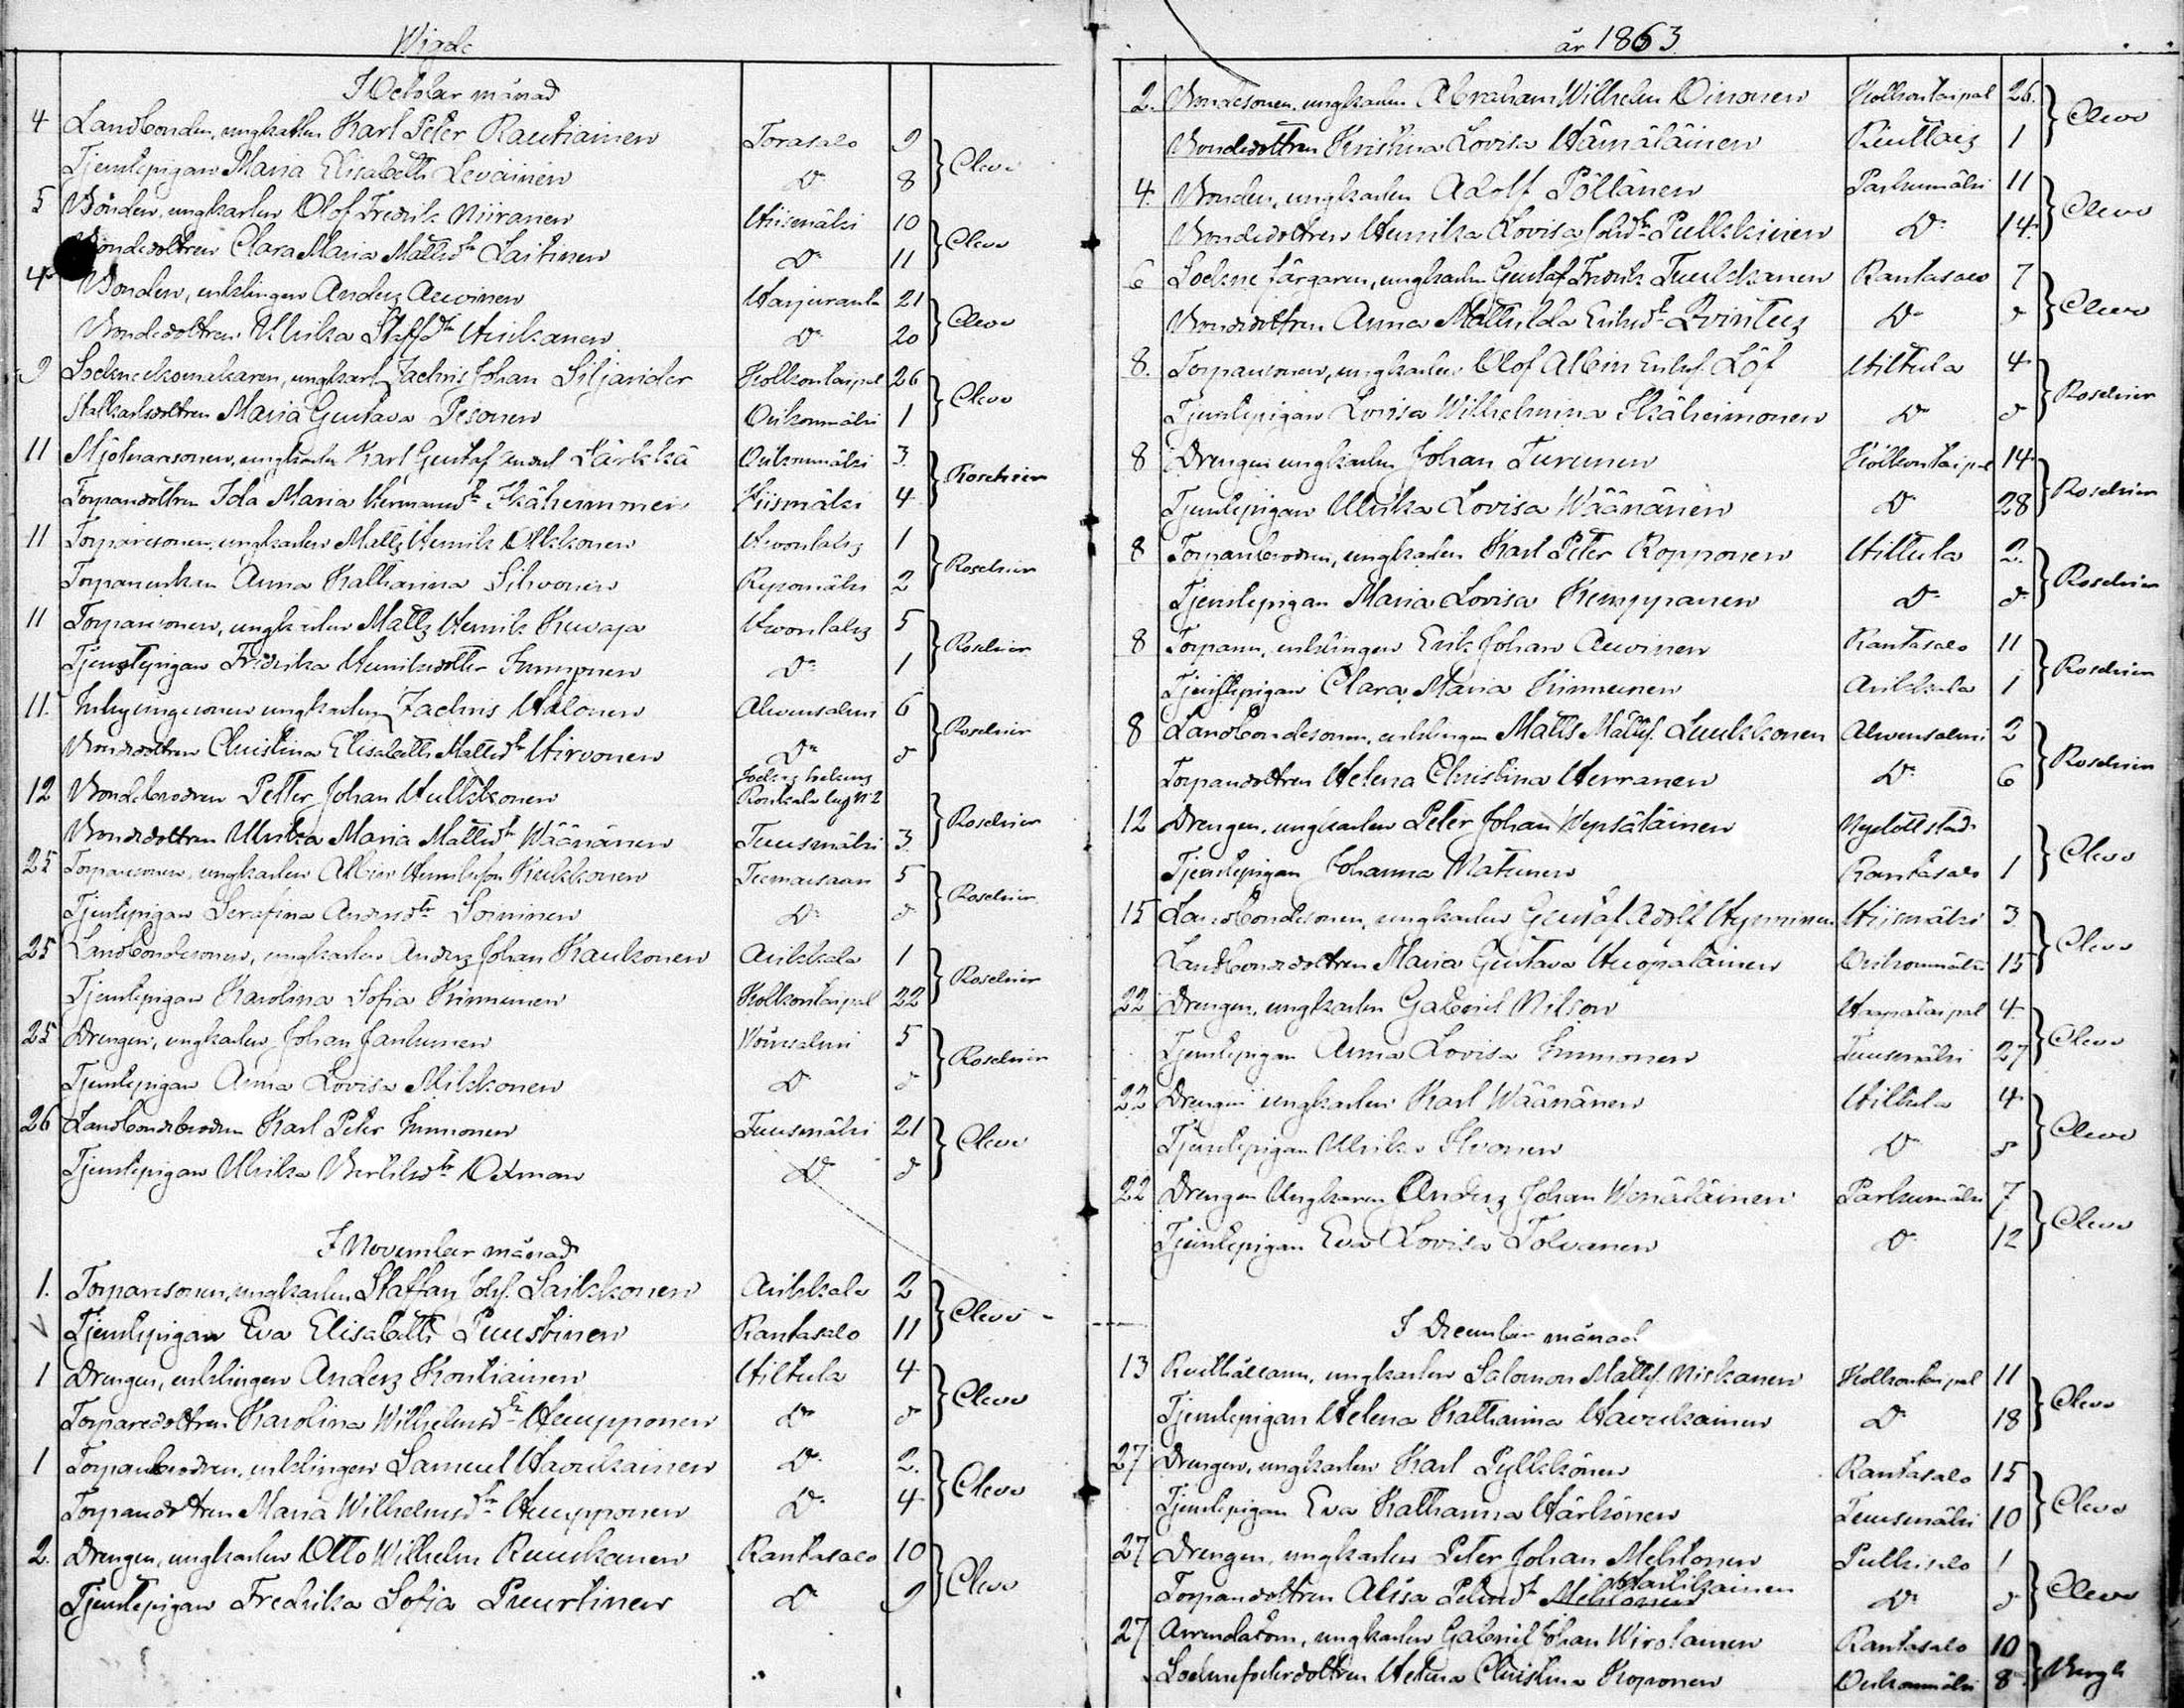 Wigde
I October månad
4 Landbonden, ungkarlen Karl Peter Rautiainen Torasalo 9 Cleve
Tjenstepigan Maria Elisabeth Leväinen D:o 8
5 Bonden, ungkarlen Olof Fredrik Niiranen Hiismäki 10 Cleve
Bondedottren Clara Maria Mattsd:r Laitinen D:o 11
4 Bonden, enklingen Anders Auvinen Harjuranta 21 Cleve
Bondedottren Ulrika Staffd:r Hirckanen D:o 20
9 Sockneskomakaren, ungkarl Zachris Johan Siljander Kolkontaipal 26 Cleve
Maria Gustava Pesonen Orikonmäki 1
11 Mjölnaresonen, ungkarlen Karl Gustaf Lärkkä Orikonmäki 3. Roschier
Torparedottren Ida Maria Hermansd:r Ikäheimonen Hiismäki 4
11 Torparesonen, ungkarlen Matts Henrik Olkkonen 1 Roschier
Torpareenkan Anna Katharina Silvonen Reponmäki 2
11 Torparesonen, ungkarlen Matts Henrik Kuvaja 5 Roschier
Tjenstepigan Fredrika Henriksdotter Immonen D:o 1
11. ungkarlen Zachris Halonen Ahvensalmi 6 Roschier
Bondedottren Christina Elisabeth Mattsd:r Hirvonen D:o d:o
12 Bondebrodren Petter Johan Hulkkonen N:2 Roschier
Bondedottren Ulrika Maria Mattsd:r Wäänänen Tuusmäki 3.
25 Torparesonen, ungkarlen Albin Henriksson Kukkonen Teemassaari 5 Roschier
Tjenstepigan Serafina Andersd:r Soininen D:o d:o
25 Landbondesonen, ungkarlen Anders Johan Kaukonen Ankkala 1 Roschier
Tjenstepigan Karolina Sofia Kinnunen Kolkontaipal 22
25 Drengen, ungkarlen Johan Janhunen 5 Roschier
Tjenstepigan Anna Lovisa Mikkonen D:o d:o
26 Landbondebrodren Karl Peter Immonen Tuusmäki 21 Cleve
Tjenstepigan Ulrika Bertilsd:r Oxman D:o d:o
I November månad
1. Torparesonen, ungkarlen Staffan Joh:s. Laikkonen Ankkala 2 Cleve
Tjenstepigan Eva Elisabeth Puustinen Rantasalo 11
1 Drengen, enklingen Anders Kontiainen Hiltula 4 Cleve
Torparedottren Karolina Wilhelmsd:r Heupponen D:o d:o
1 Torparebrodren, enklingen Samuel Haverikainen D:o 2. Cleve
Torparedottren Maria Wilhelmsd:r Heupponen D:o 4
2. Drengen, ungkarlen Otto Wilhelm Ruuskanen Rantasalo 10 Cleve
Tjenstepigan Fredrika Sofia Puurtinen D:o 9
år 1863
2. Bondesonen, ungkarlen Abraham Wilhelm Oinonen Kolkontaipal 26. Cleve
Bondedottren Kristina Lovisa Hämäläinen 1
4. Bonden, ungkarlen Adolf Pöllänen Parkumäki 11 Cleve
Bondedottren Henrika Lovisa Joh:d:r Pulkkinen D:o 14.
6 Sockne färgaren, ungkarlen Gustaf Fredrik Tuukkanen Rantasalo 7 Cleve
Bondedottren Anna Mathilda Eriksd:r Qvintus D:o d:o
8. Torparesonen, ungkarlen Olof Albin Eriksf. Löf Hiltula 4 Roschier
Tjenstepigan Lovisa Wilhelmina Ikäheimonen D:o d:o
8 Drengen ungkarlen Johan Turunen Kolkontaipal 14 Roschier
Tjenstepigan Ulrika Lovisa Wäänänen D:o 28
8 Torparebrodren, ungkarlen Karl Peter Ropponen Hiltula 2. Roschier
Tjenstepigan Maria Lovisa Kemppanen D:o d:o
8 Torparen, enklingen Erik Johan Auvinen Rantasalo 11 Roschier
Tjenstepigan Clara Maria Kinnunen Ankkala 1
8 Landbondesonen, enklingen Matts Mattsf. Luukkonen Ahvensalmi 2 Roschier
Torparedottren Helena Christina Herranen D:o 6
12 Drengen, ungkarlen Peter Johan Wepsäläinen Nyslott stad Cleve
Tjenstepigan Johanna Matunen Rantasalo 1
15 Landbondesonen, ungkarlen Gustaf Adolf Hynninen Hiismäki 3 Cleve
Landbondedottren Maria Gustava Huopalainen Orikonmäki 15
22 Drengen, ungkarlen Gabriel Nilson Haapataipal 4 Cleve
Tjenstepigan Anna Lovisa Immonen Tuusmäki 27
22 Drengen ungkarlen Karl Wäänänen Hiltula 4 Cleve
Tjenstepigan Ulrika Ilvonen D:o d:o
22 Drengen Ungkaren Anders Johan Wenäläinen Parkumäki 7 Cleve
Tjenstepigan Eva Lovisa Tolvanen D:o 12
I December månad
13 ungkarlen Salomon Mattsf. Niskanen Kolkontaipal 11 Cleve
Tjenstepigan Helena Katharina Haverikainen D:o 18
27 Drengen, ungkarlen Karl Pylkkönen Rantasalo 15 Cleve
Tjenstepigan Eva Katharina Härkönen Tuusmäki 10
27 Drengen, ungkarlen Peter Johan Mehtonen Pulkisalo 1 Cleve
Torparedottren Alisa Petersd:r D:o d:o
27 Arrendatorn, ungkarlen Gabriel Johan Wirolainen Rantasalo 10 Bergh
Helena Christina Koponen Orikonmäki 8